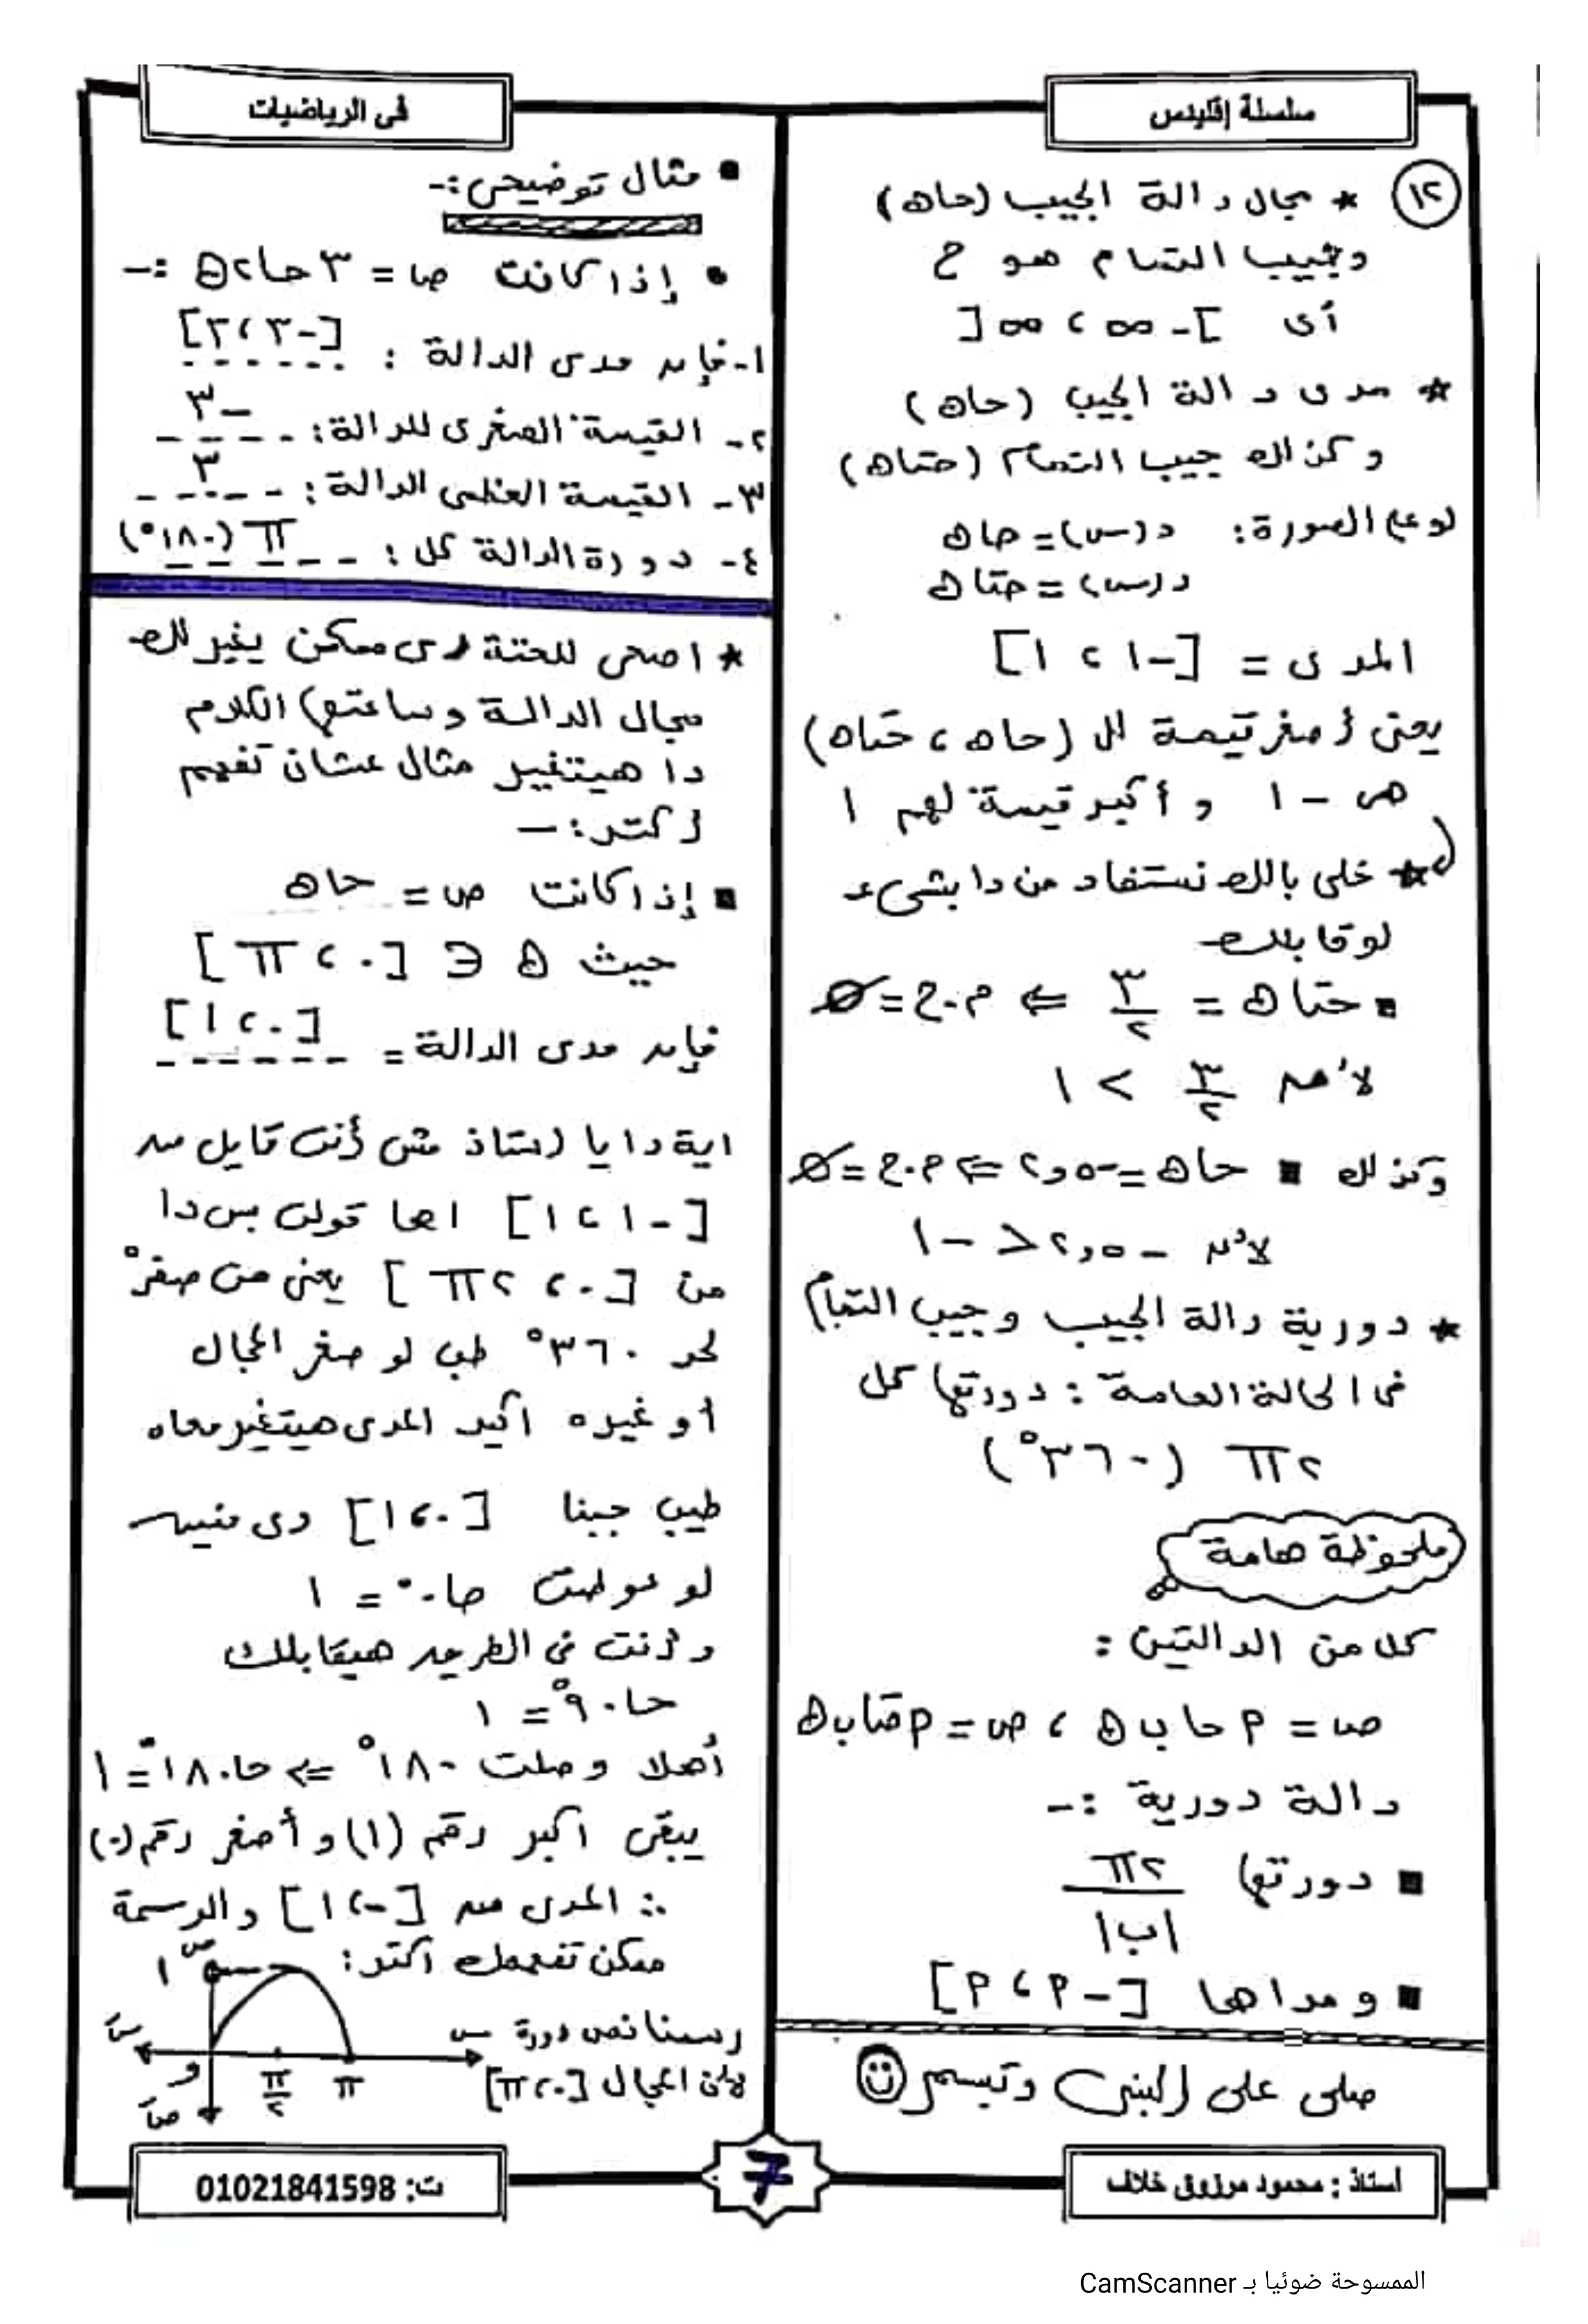 سلسلة إقليدس
فى الرياضيات
١٢ * مجال دالة الجيب (حاه)
وجيب التمام هو ح
أى ]-∞ ، ∞[
* مدى دالة الجيب (حاه)
وكذلك جيب التمام (حتاه)
لو على الصورة: د(س) = حاه
د(س) = حتاه
المدى = [-١ ، ١]
يعنى أصغر قيمة لل (حاه ، حتاه)
هى -١ و أكبر قيمة لهم ١
* خلى بالك نستفاد من دا بشىء
لو قابلك
▪ حتاه = ٣/٢ ⇐ م.ح = ∅
لأن ٣/٢ > ١
وكذلك ▪ حاه = -٢,٥ ⇐ م.ح = ∅
لأن -٢,٥ < -١
* دورية دالة الجيب وجيب التمام
فى الحالة العامة : دورتها كل
٢π (٣٦٠°)
ملحوظة هامة
كلا من الدالتين :
ص = م حا ب ه ، ص = م حتا ب ه
دالة دورية :-
▪ دورتها ٢π/|ب|
▪ ومداها [-م ، م]
صلى على النبى وتبسم
▪ مثال توضيحى :-
• إذا كانت ص = ٣ حا٢ه :-
١- فإن مدى الدالة : [-٣ ، ٣]
٢- القيمة الصغرى للدالة : -٣
٣- القيمة العظمى الدالة : ٣
٤- دورة الدالة كل : π (١٨٠°)
* اصحى للحتة دى ممكن يغير لك
مجال الدالة وساعتها الكلام
دا هيتغير مثال عشان تفهم
أكتر :-
▪ إذا كانت ص = حاه
حيث ه ∈ [٠ ، π]
فإن مدى الدالة = [٠ ، ١]
اية دا يا استاذ مش أنت قايل من
[-١ ، ١] اها قولت بس دا
من [٠ ، ٢π] يعنى من صفر°
لحد ٣٦٠° طب لو صغر المجال
أو غيره اكيد المدى هيتغير معاه
طيب جبنا [٠ ، ١] دى منين
لو عوضت حا٠° = ١
وأنت فى الطريق هيقابلك
حا٩٠° = ١
أهلا وصلت ١٨٠° ⇐ حا١٨٠° = ١
يبقى اكبر رقم (١) و أصغر رقم (٠)
∴ المدى من [٠ ، ١] والرسمة
ممكن تفهمك اكتر :
رسمنا نص دورة
لأن المجال [٠ ، π]
ص
١
س
سَ
و
π/٢
π
صَ
أستاذ : محمود مرزوق خلاف
7
ت: 01021841598
الممسوحة ضوئيا بـ CamScanner